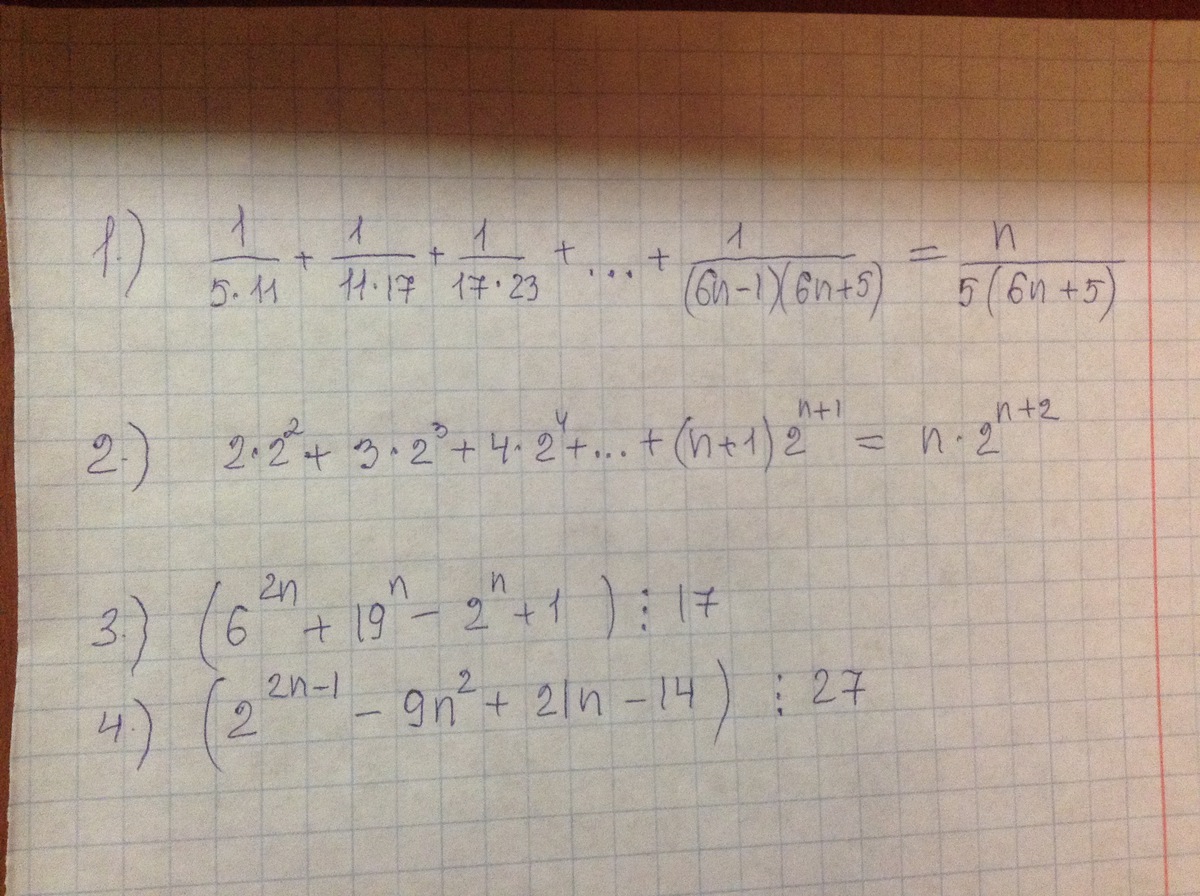 1.) 1/(5·11) + 1/(11·17) + 1/(17·23) + ... + 1/((6n-1)(6n+5)) = n/(5(6n+5))
2.) 2·2² + 3·2³ + 4·2⁴ + ... + (n+1)2^(n+1) = n·2^(n+2)
3.) (6^(2n) + 19^n - 2^n + 1) ⋮ 17
4.) (2^(2n-1) - 9n² + 21n - 14) ⋮ 27